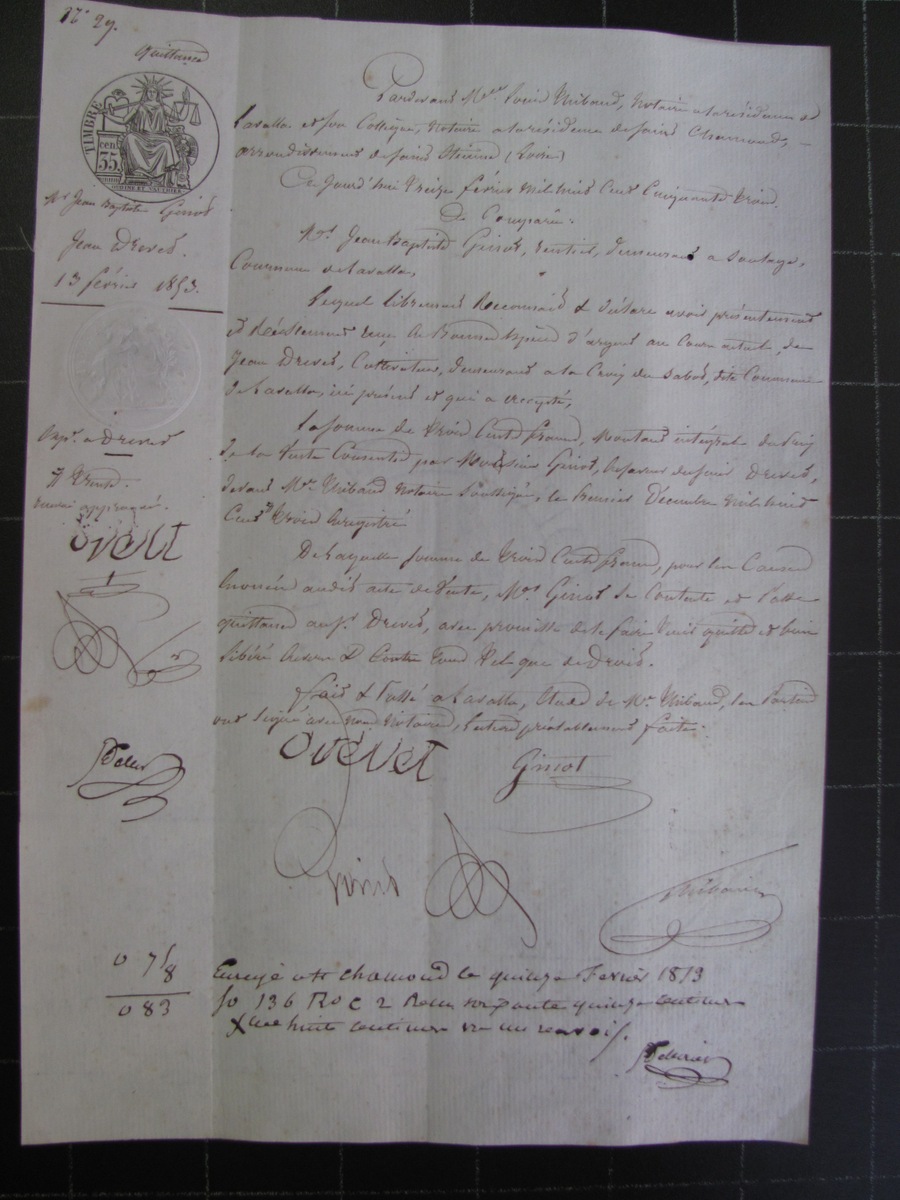 N° 29.
Quittance
TIMBRE
cen.
35.
Mr Jean Baptiste Ginot
Jean Drevet.
13 février 1853.
Exp. a Drevet
Drevet
Pardevant Me Louis Thibaud, Notaire à la résidence de
Lavalla et son Collègue, Notaire à la résidence de saint Chamond,
arrondissement de saint Etienne (Loire)
Ce jourd'hui treize février mil huit Cent Cinquante trois.
A Comparu:
Mr Jean Baptiste Ginot, rentier, demeurant à
Commune de Lavalla,
Lequel librement Reconnait & déclare avoir présentement
et Réellement reçu en bonnes espèces d'argent au cours actuel, de
Jean Drevet, Cultivateur, demeurant à la Croix du Sabot, dite Commune
de Lavalla, ici présent et qui a accepté,
La Somme de trois Cents francs, Montant intégral du prix
de la Vente Consentie par Monsieur Ginot, en faveur dudit Drevet,
devant Me Thibaud Notaire Soussigné, le premier Décembre mil huit
Cent trois Enregistré
De laquelle somme de trois Cents francs, pour les Causes
énoncées audit acte de Vente, Mr Ginot se Contente et passe
quittance au sr Drevet, avec promesse de le faire tenir quitte et bien
libéré envers & Contre tous tel que de Droit.
Fait & Passé à Lavalla, Etude de Me Thibaud, les Parties
ont signé avec nous Notaire, lecture préalablement faite.
Drevet Ginot
Thibaud
0 7/8
0 83
Enregé à St chamond le quinze Fevrier 1853
fo 136 Ro C 2 Reçu soixante quinze centimes
huit centimes un renvoi.